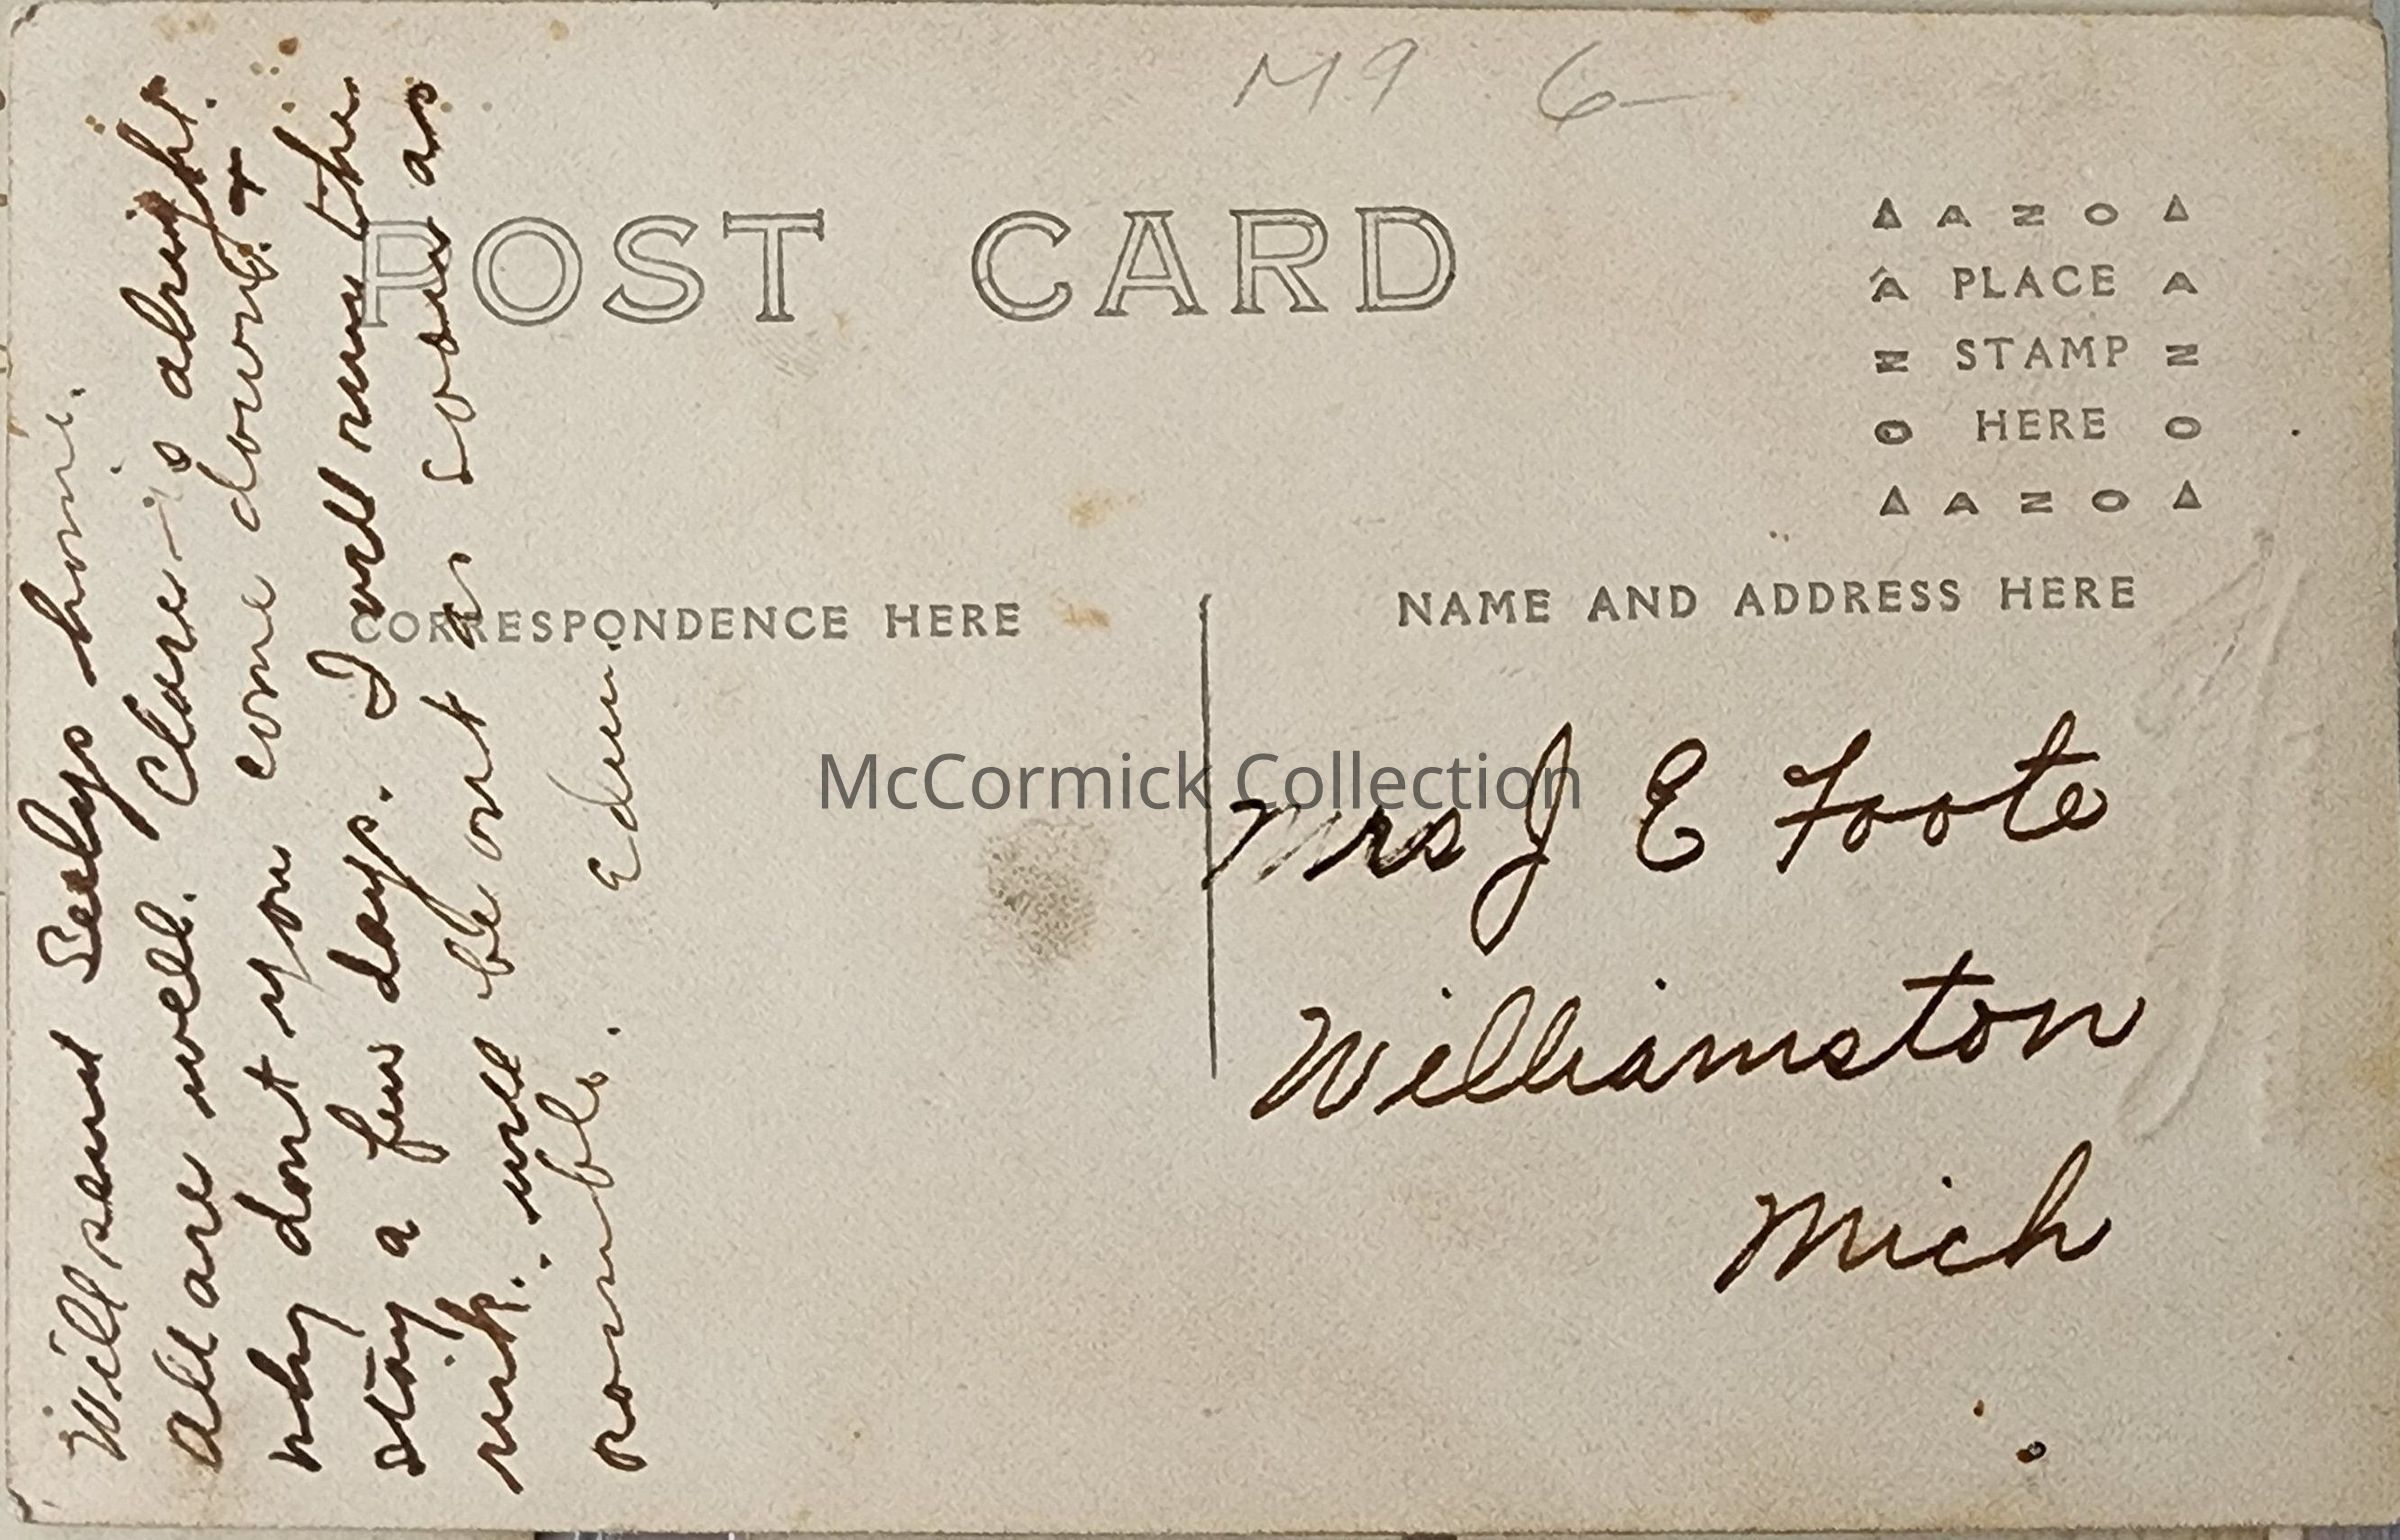 M9 6-
POST CARD
AZO
PLACE
STAMP
HERE
AZO
CORRESPONDENCE HERE
NAME AND ADDRESS HERE
Will send Seelys home.
All are well. Clare is alright.
Why dont you come down. +
stay a few days. I will run the
risk. will be out as soon as
possible. Edw.
Mrs J E Foote
Williamston
Mich
McCormick Collection